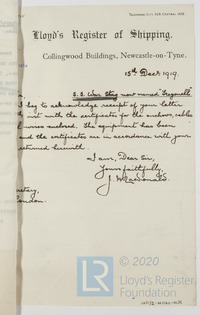 Telephone: City 528 Central 1835
Lloyd's Register of Shipping.
Collingwood Buildings, Newcastle-on-Tyne.
15th Decr 1919.
S.S. War Stag now named
I beg to acknowledge receipt of your letter
with the certificates for the anchors, cables
enclosed. The equipment has been
and the certificates are in accordance with your
returned herewith.
I am, Dear Sir,
Yours faithfully,
J. Macdonald.
London.
© 2020
Lloyd's Register
Foundation
LR